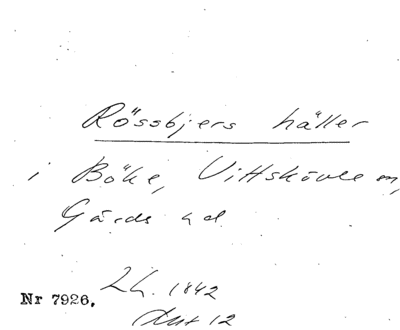 Rössbjers häller
i Böke, Vittskövle sn,
Gärds hd
Nr 7926. Lh. 1842
Aut 12